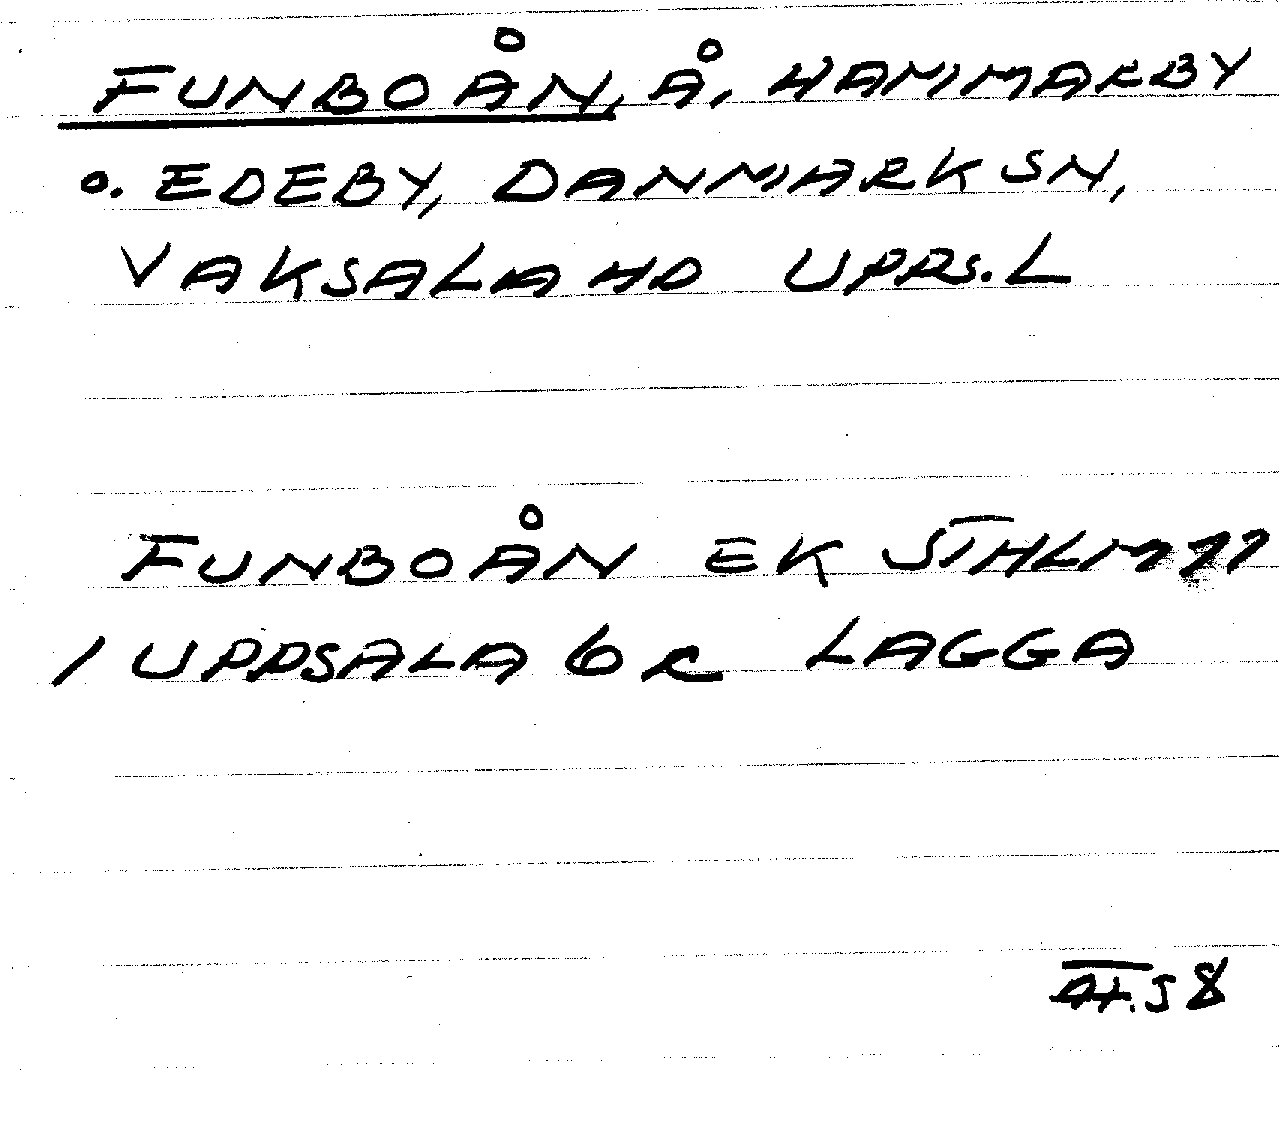 FUNBOÅN, Å, HAMMARBY
o. EDEBY, DANMARK SN,
VAKSALA HD UPPS. L
FUNBOÅN EK STHLM 77
/ UPPSALA 6 c LAGGA
58